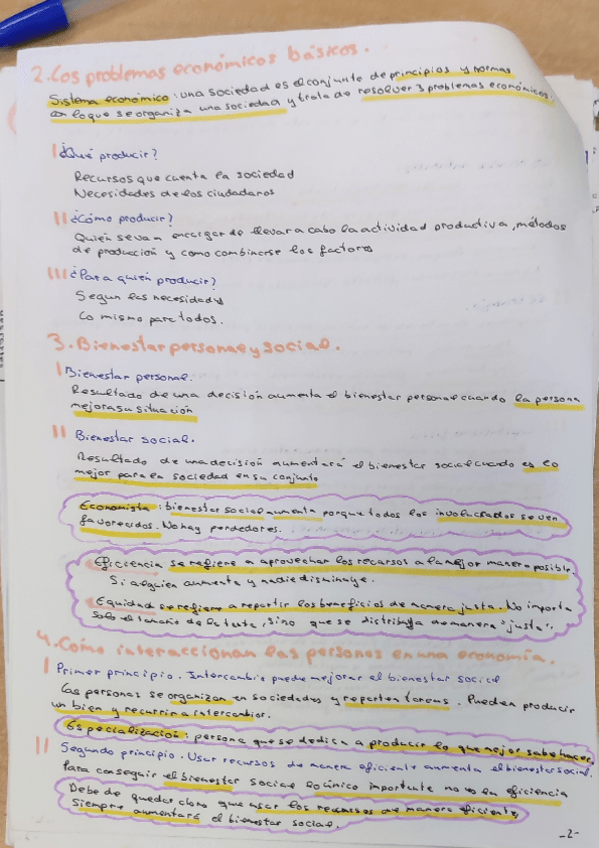 2. Los problemas económicos básicos.
Sistema económico: una sociedad es el conjunto de principios y normas
en lo que se organiza una sociedad y trata de resolver 3 problemas económicos.
I ¿Qué producir?
Recursos que cuenta la sociedad
Necesidades de los ciudadanos
II ¿Cómo producir?
Quién se van encargar de llevar a cabo la actividad productiva, métodos
de producción y como combinarse los factores
III ¿Para quién producir?
Segun las necesidades
Lo mismo para todos.
3. Bienestar personal y social.
I Bienestar personal.
Resultado de una decisión aumenta el bienestar personal cuando la persona
mejora su situación
II Bienestar social.
Resultado de una decisión aumentará el bienestar social cuado es lo
mejor para la sociedad en su conjunto
Economista: bienestar social aumenta porque todos los involucrados se ven
favorecidos. No hay perdedores.
Eficiencia se refiere a aprovechar los recursos a la mejor manera posible
Si alguien aumenta y nadie disminuye.
Equidad se refiere a repartir los beneficios de manera justa. No importa
solo el tamaño de la tarta, sino que se distribuya de manera "justa".
4. Cómo interaccionan las personas en una economía.
I Primer principio. Intercambio puede mejorar el bienestar social
Las personas se organizan en sociedades y reparten tareas. Pueden producir
un bien y recurrir a intercambios.
Especialización: persona que se dedica a producir lo que mejor sabe hacer.
II Segundo principio. Usar recursos de manera eficiente aumenta el bienestar social.
Para conseguir el bienestar social lo único importante no es la eficiencia
Debe de quedar claro que usar los recursos de manera eficiente
siempre aumentará el bienestar social.
-2-